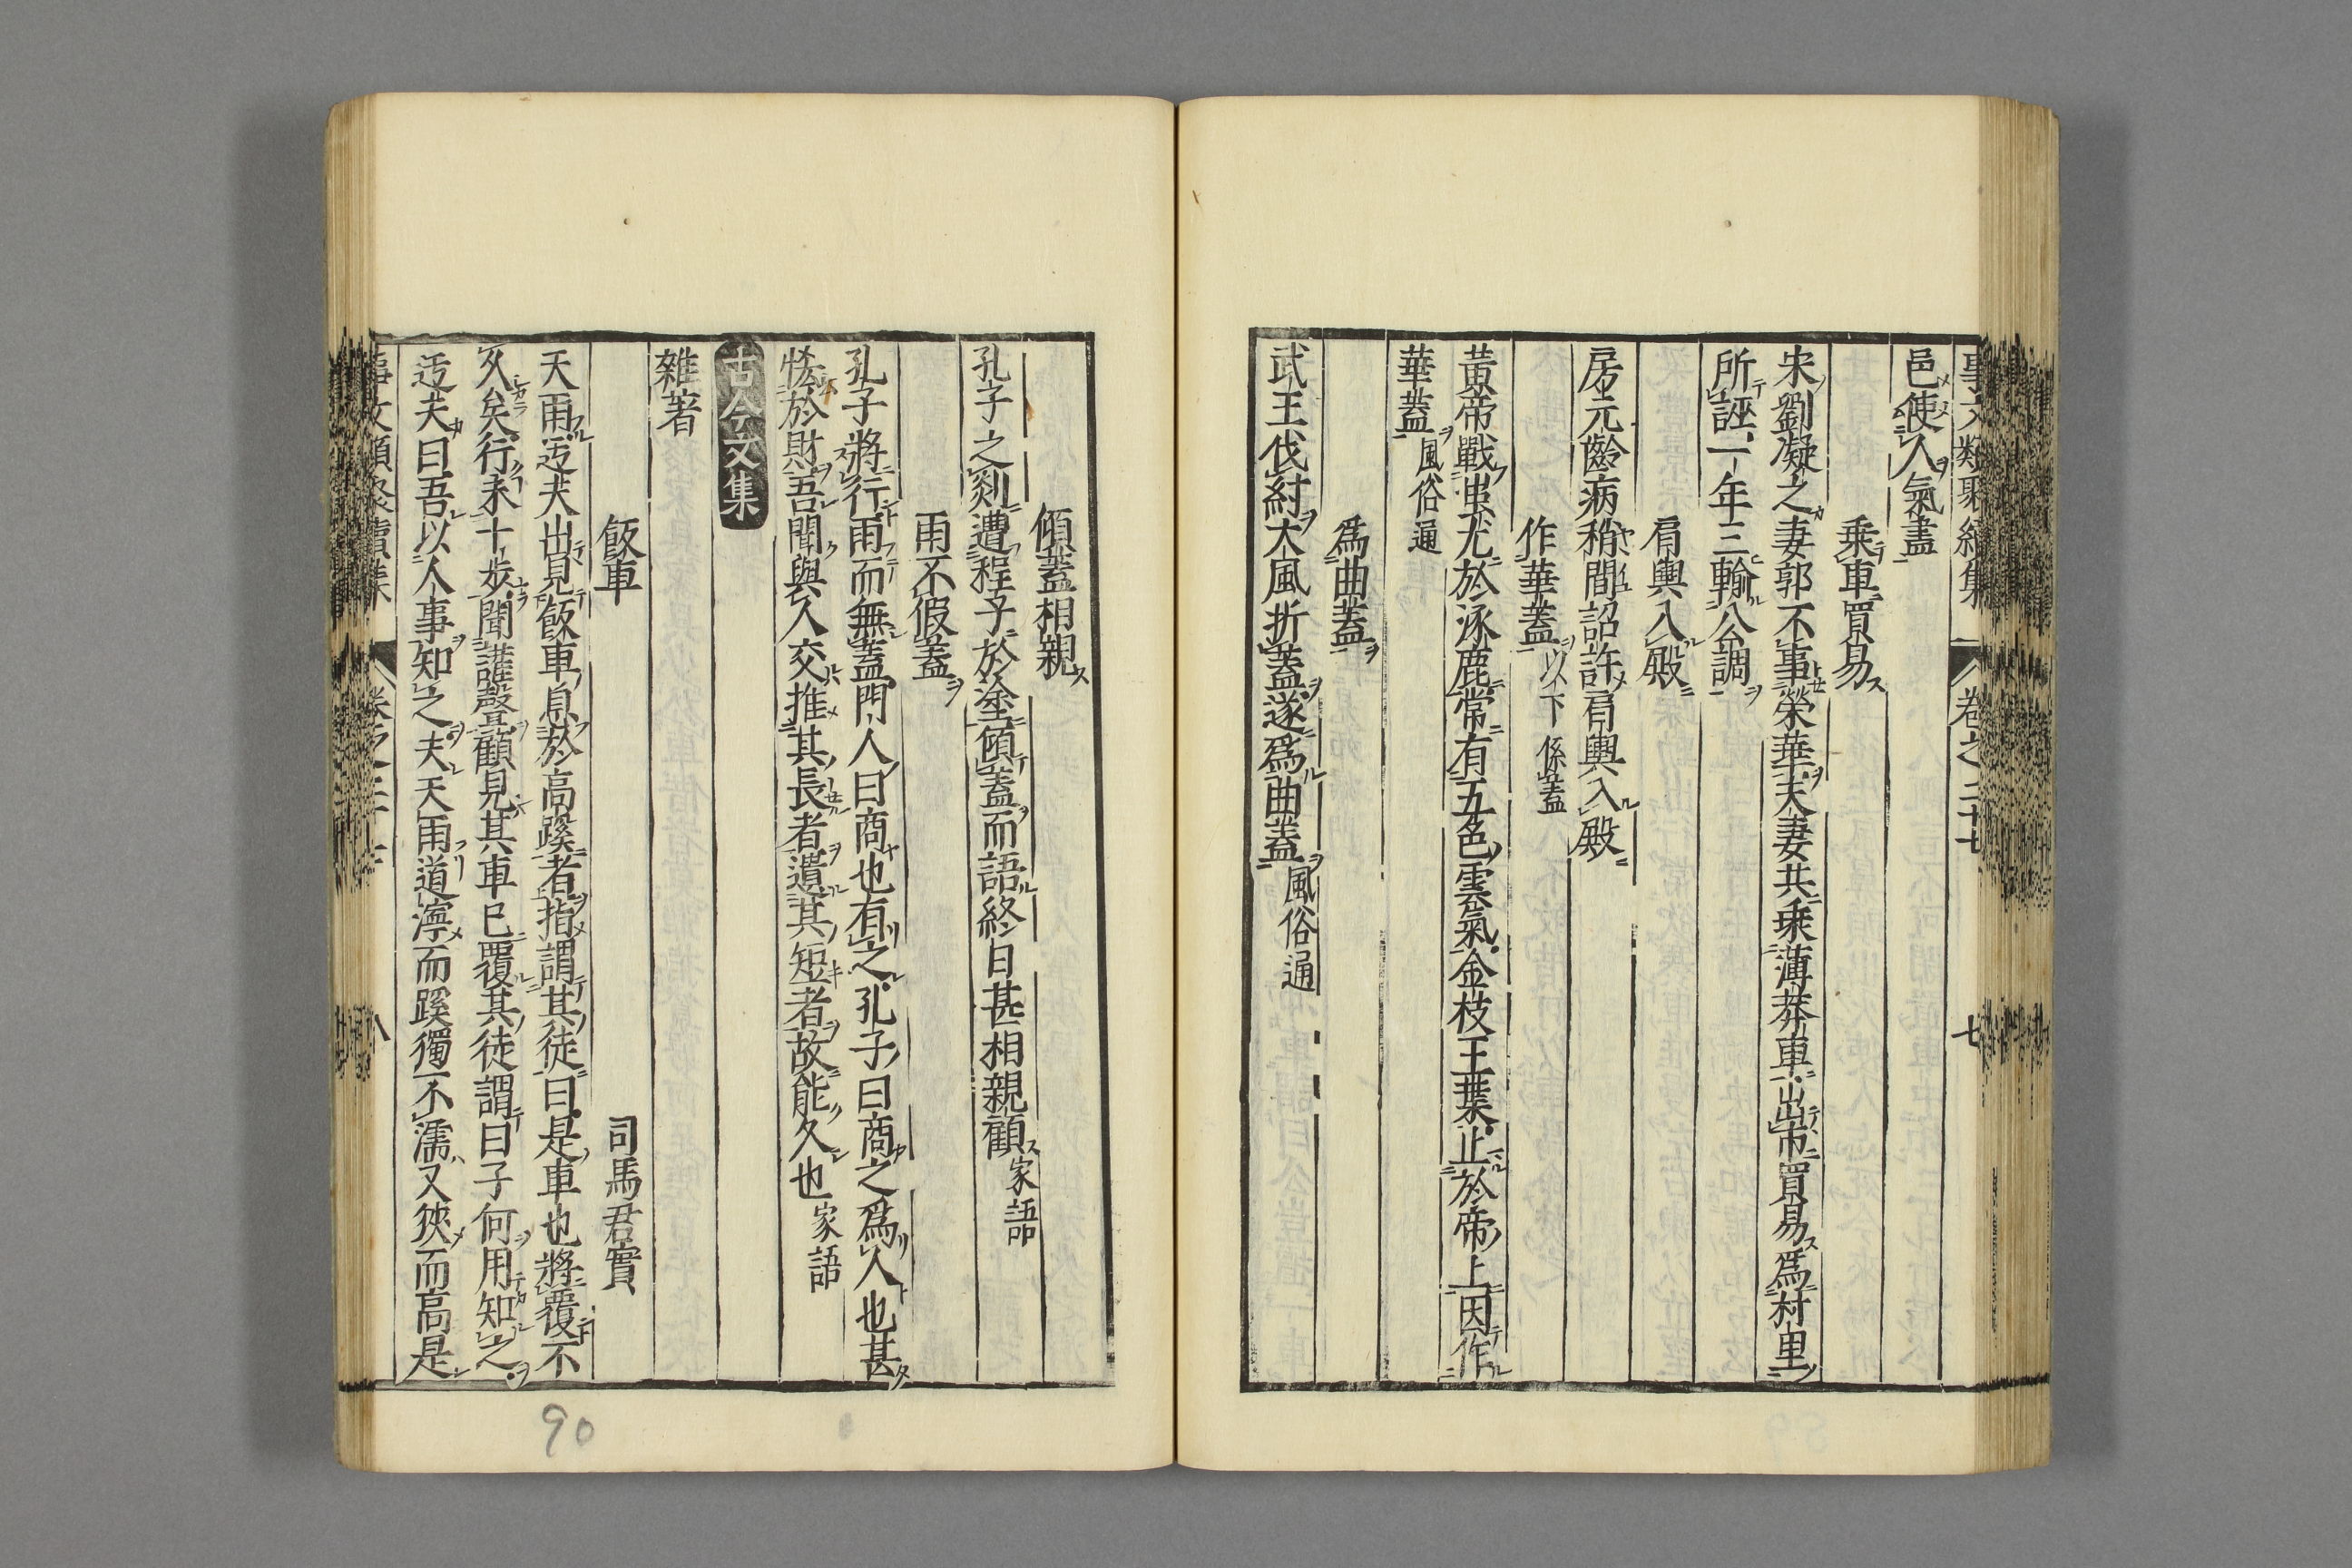 事文類聚續集　卷之二十七　七
邑使入氣盡
乗車買易
宋劉凝之妻郭不事榮華夫妻共乗薄莽車出市買易爲村里
所誣一年三輸公調
肩輿入殿
房元齡病稍間詔許肩輿入殿
作華蓋以下係蓋
黃帝戰蚩尤於涿鹿常有五色雲氣金枝玉葉止於帝上因作
華蓋風俗通
爲曲蓋
武王伐紂大風折蓋遂爲曲蓋風俗通
傾蓋相親
孔子之剡遭程子於塗傾蓋而語終日甚相親顧家語
雨不假蓋
孔子將行雨而無蓋門人曰商也有之孔子曰商之爲人也甚
恡於財吾聞與人交推其長者遺其短者故能久也家語
古今文集
雜著
飯車　司馬君實
天雨迃夫出見飯車息於高蹊者指謂其徒曰是車也將覆不
久矣行未十步聞讙聲顧見其車已覆其徒謂曰子何用知之
迃夫曰吾以人事知之夫天雨道濘而蹊獨不濡又狹而高是
事文類聚續集　卷之二十七　八
90